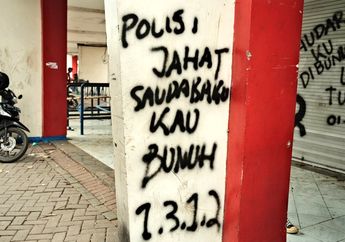 POLISI
JAHAT
SAUDABAKU
KAU
BUNUH
1.3.1.2
UDAR
KU
DIBUN
U
TU
01.